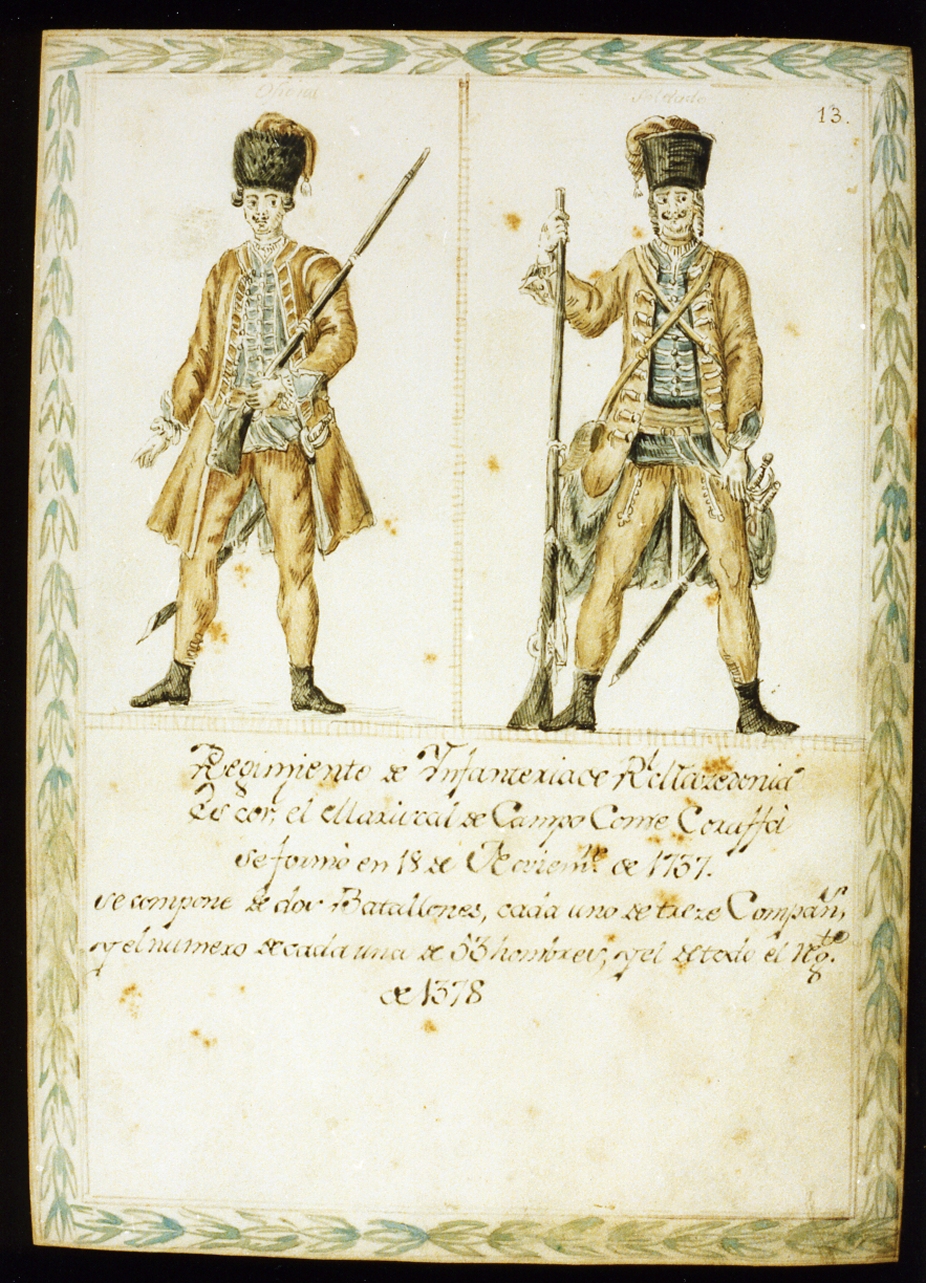 Oficial
Soldado
13.
Regimiento de Infanteria de Rl Mazedonia
Es cor, el Mariscal de Campo Conte Coraffà
se formò en 18 de Noviemre de 1737.
se compone de dos Batallones, cada uno de treze Compans,
y el numero de cada una de 53 hombres, y el de todo el Rgto
de 1378